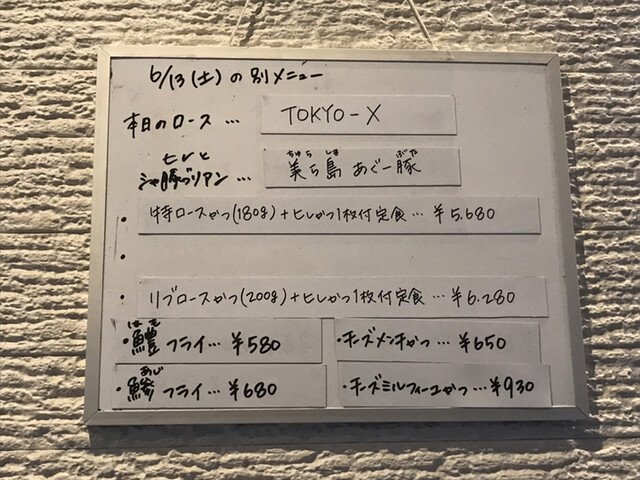 6/13(土)の別メニュー
本日のロース … TOKYO-X
ヒレと
シャ豚ブリアン … 美ら島 あぐー豚
ちゅら しま ぶた
・特ロースかつ(180g)+ヒレかつ1枚付定食…¥5,680
・
・リブロースかつ(200g)+ヒレかつ1枚付定食…¥6,280
・鱧フライ…¥580
はも
・チーズメンチかつ…¥650
・鯵フライ…¥680
あじ
・チーズミルフィーユかつ…¥930